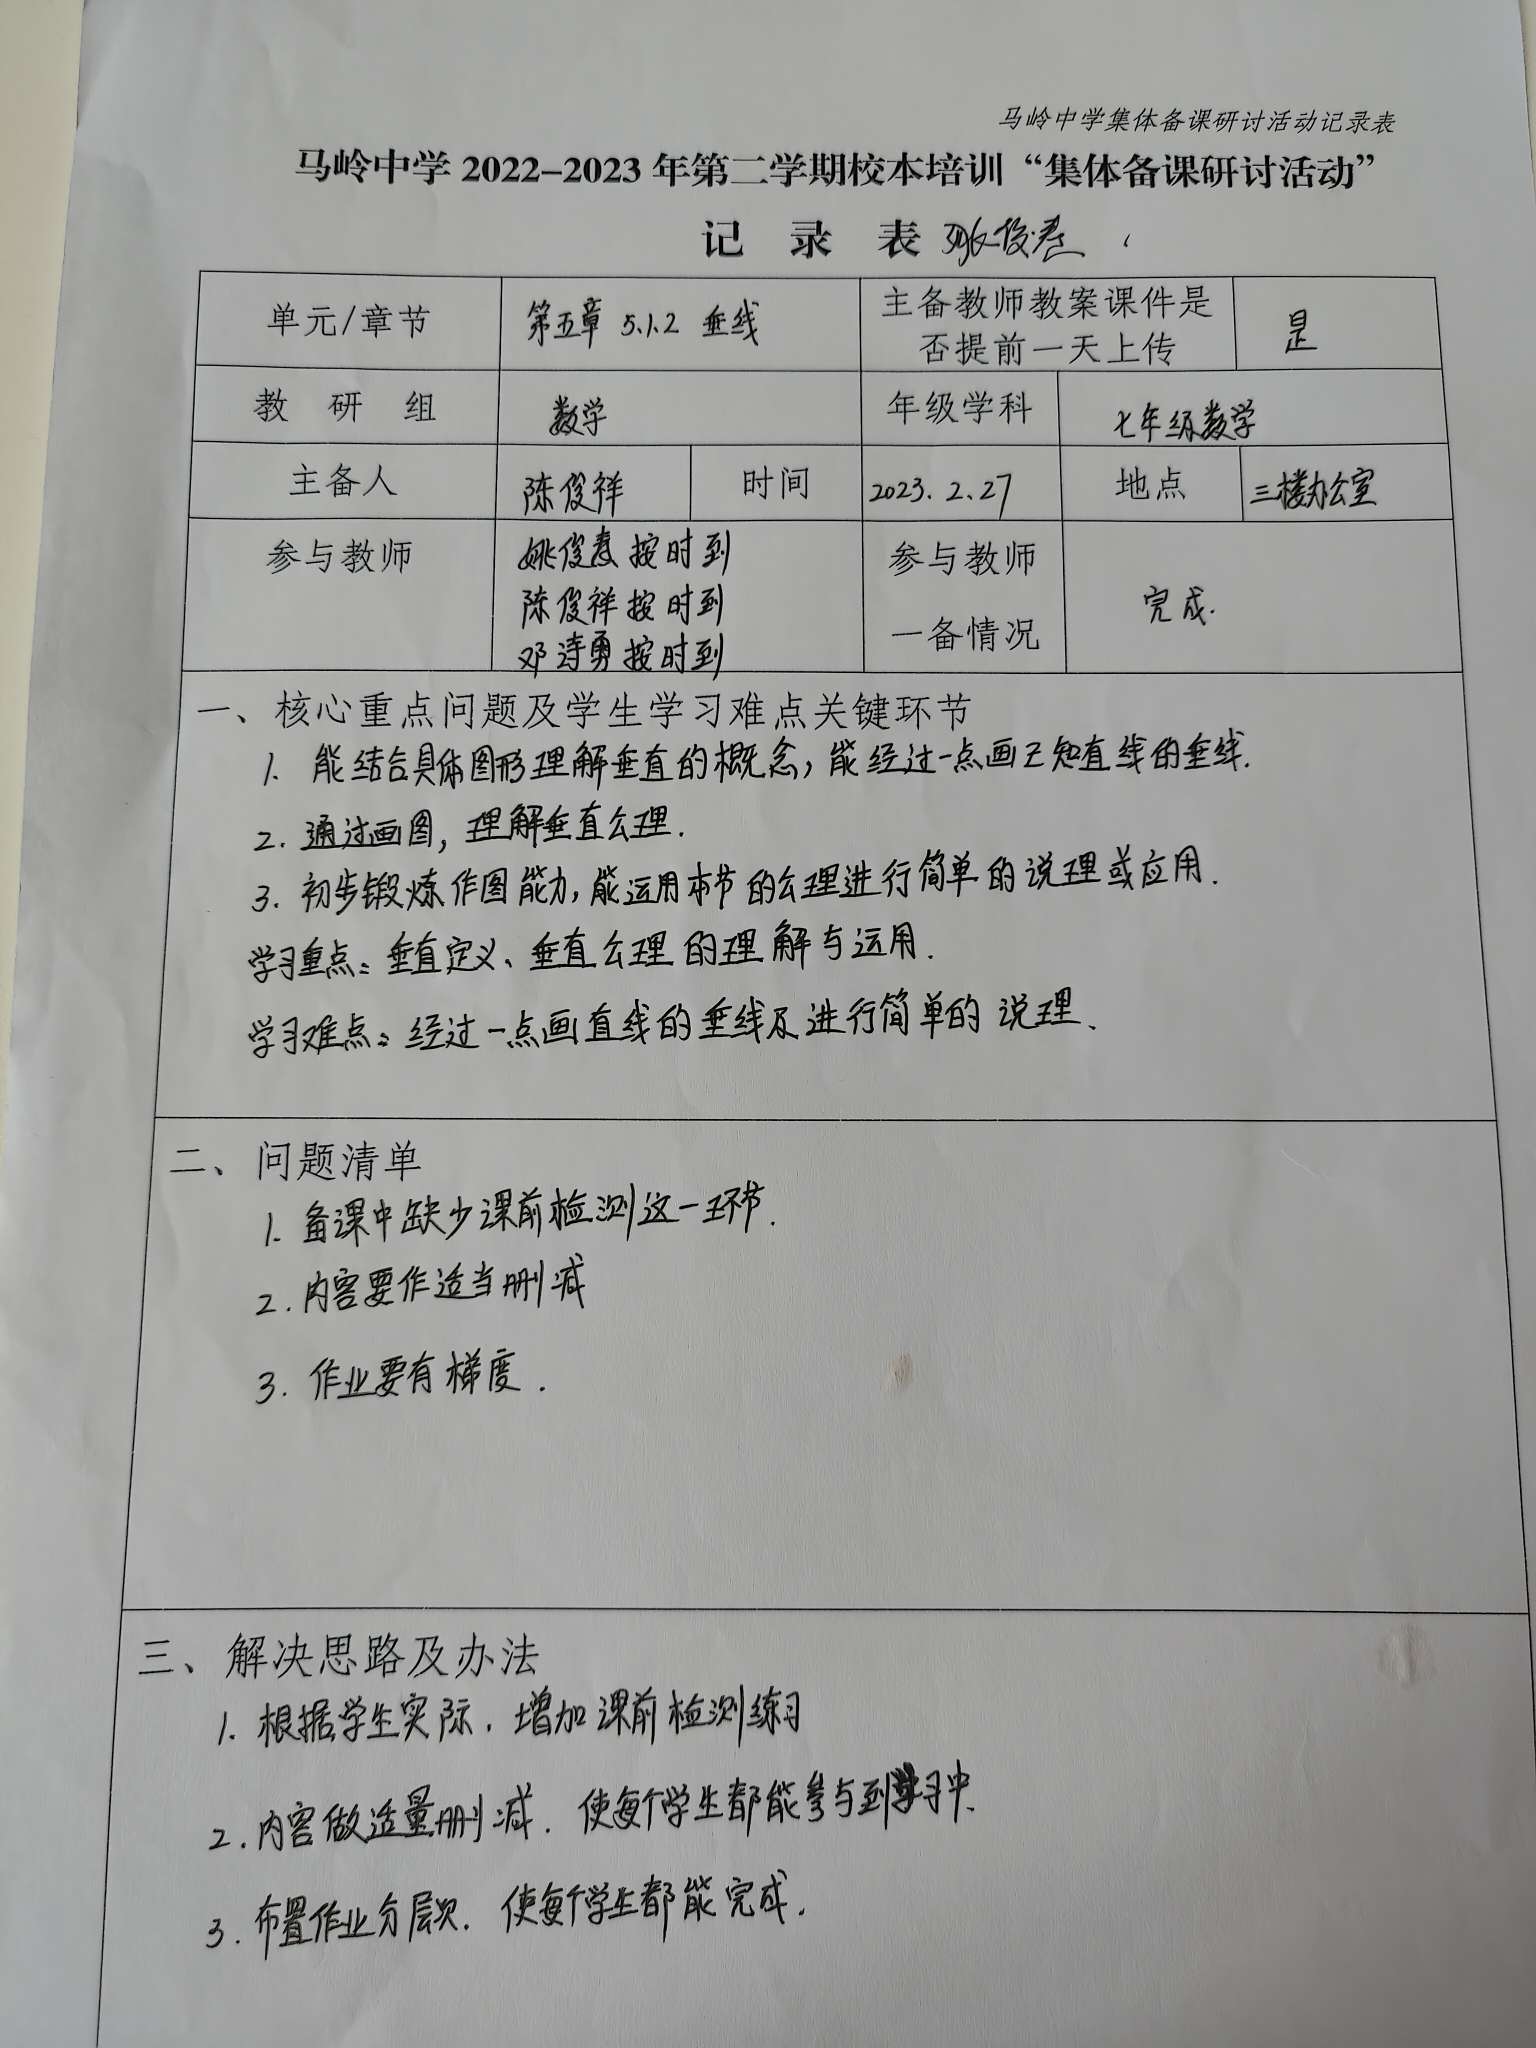 马岭中学集体备课研讨活动记录表
马岭中学 2022-2023 年第二学期校本培训“集体备课研讨活动”
记 录 表 姚俊素
单元/章节 第五章 5.1.2 垂线 主备教师教案课件是 是
否提前一天上传
教 研 组 数学 年级学科 七年级数学
主备人 陈俊祥 时间 2023.2.27 地点 三楼办公室
参与教师 姚俊素按时到 参与教师 完成.
陈俊祥按时到
邓诗勇按时到 一备情况
一、核心重点问题及学生学习难点关键环节
1. 能结合具体图形理解垂直的概念,能经过一点画已知直线的垂线.
2. 通过画图,理解垂直公理.
3. 初步锻炼作图能力,能运用本节的公理进行简单的说理或应用.
学习重点:垂直定义、垂直公理的理解与运用.
学习难点:经过一点画直线的垂线及进行简单的说理、
二、问题清单
1. 备课中缺少课前检测这一环节.
2. 内容要作适当删减
3. 作业要有梯度.
三、解决思路及办法
1. 根据学生实际.增加课前检测练习
2. 内容做适量删减.使每个学生都能参与到学习中.
3. 布置作业分层次.使每个学生都能完成.